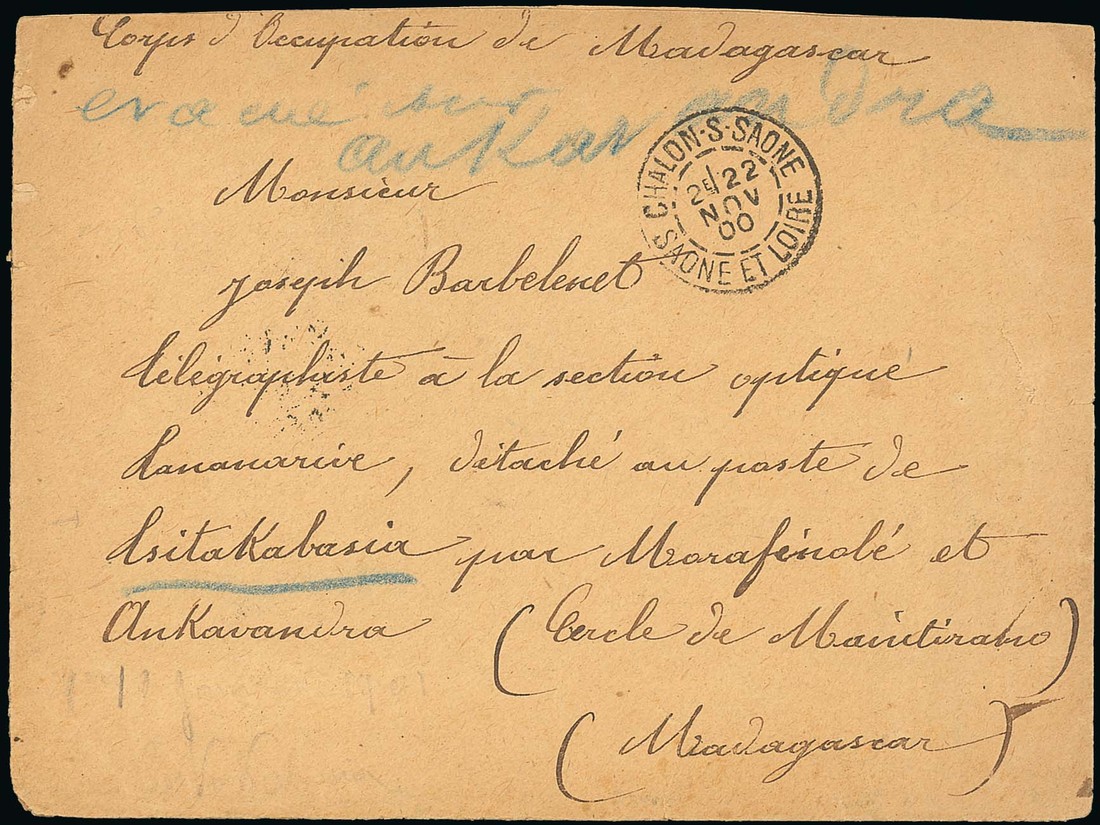 Corps d'Occupation de Madagascar
evacué sur
ankavandra
CHALON-S-SAONE
2E 22
NOV
00
SAONE ET LOIRE
Monsieur
Joseph Barbelenet
télégraphiste à la section optique
Tananarive, détaché au poste de
Tsitakabasia par Morafénobé et
Ankavandra (Cercle de Maintirano)
(Madagascar)